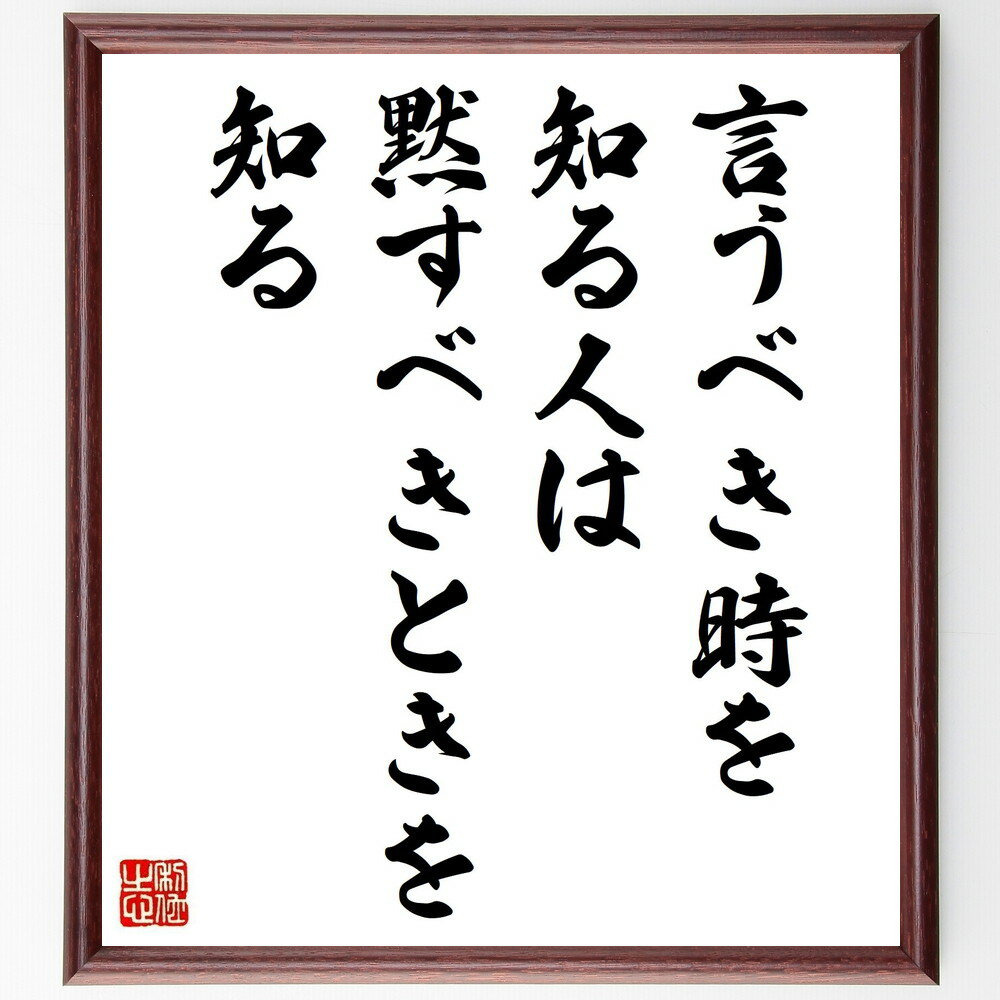 言うべき時を
知る人は
黙すべきときを
知る